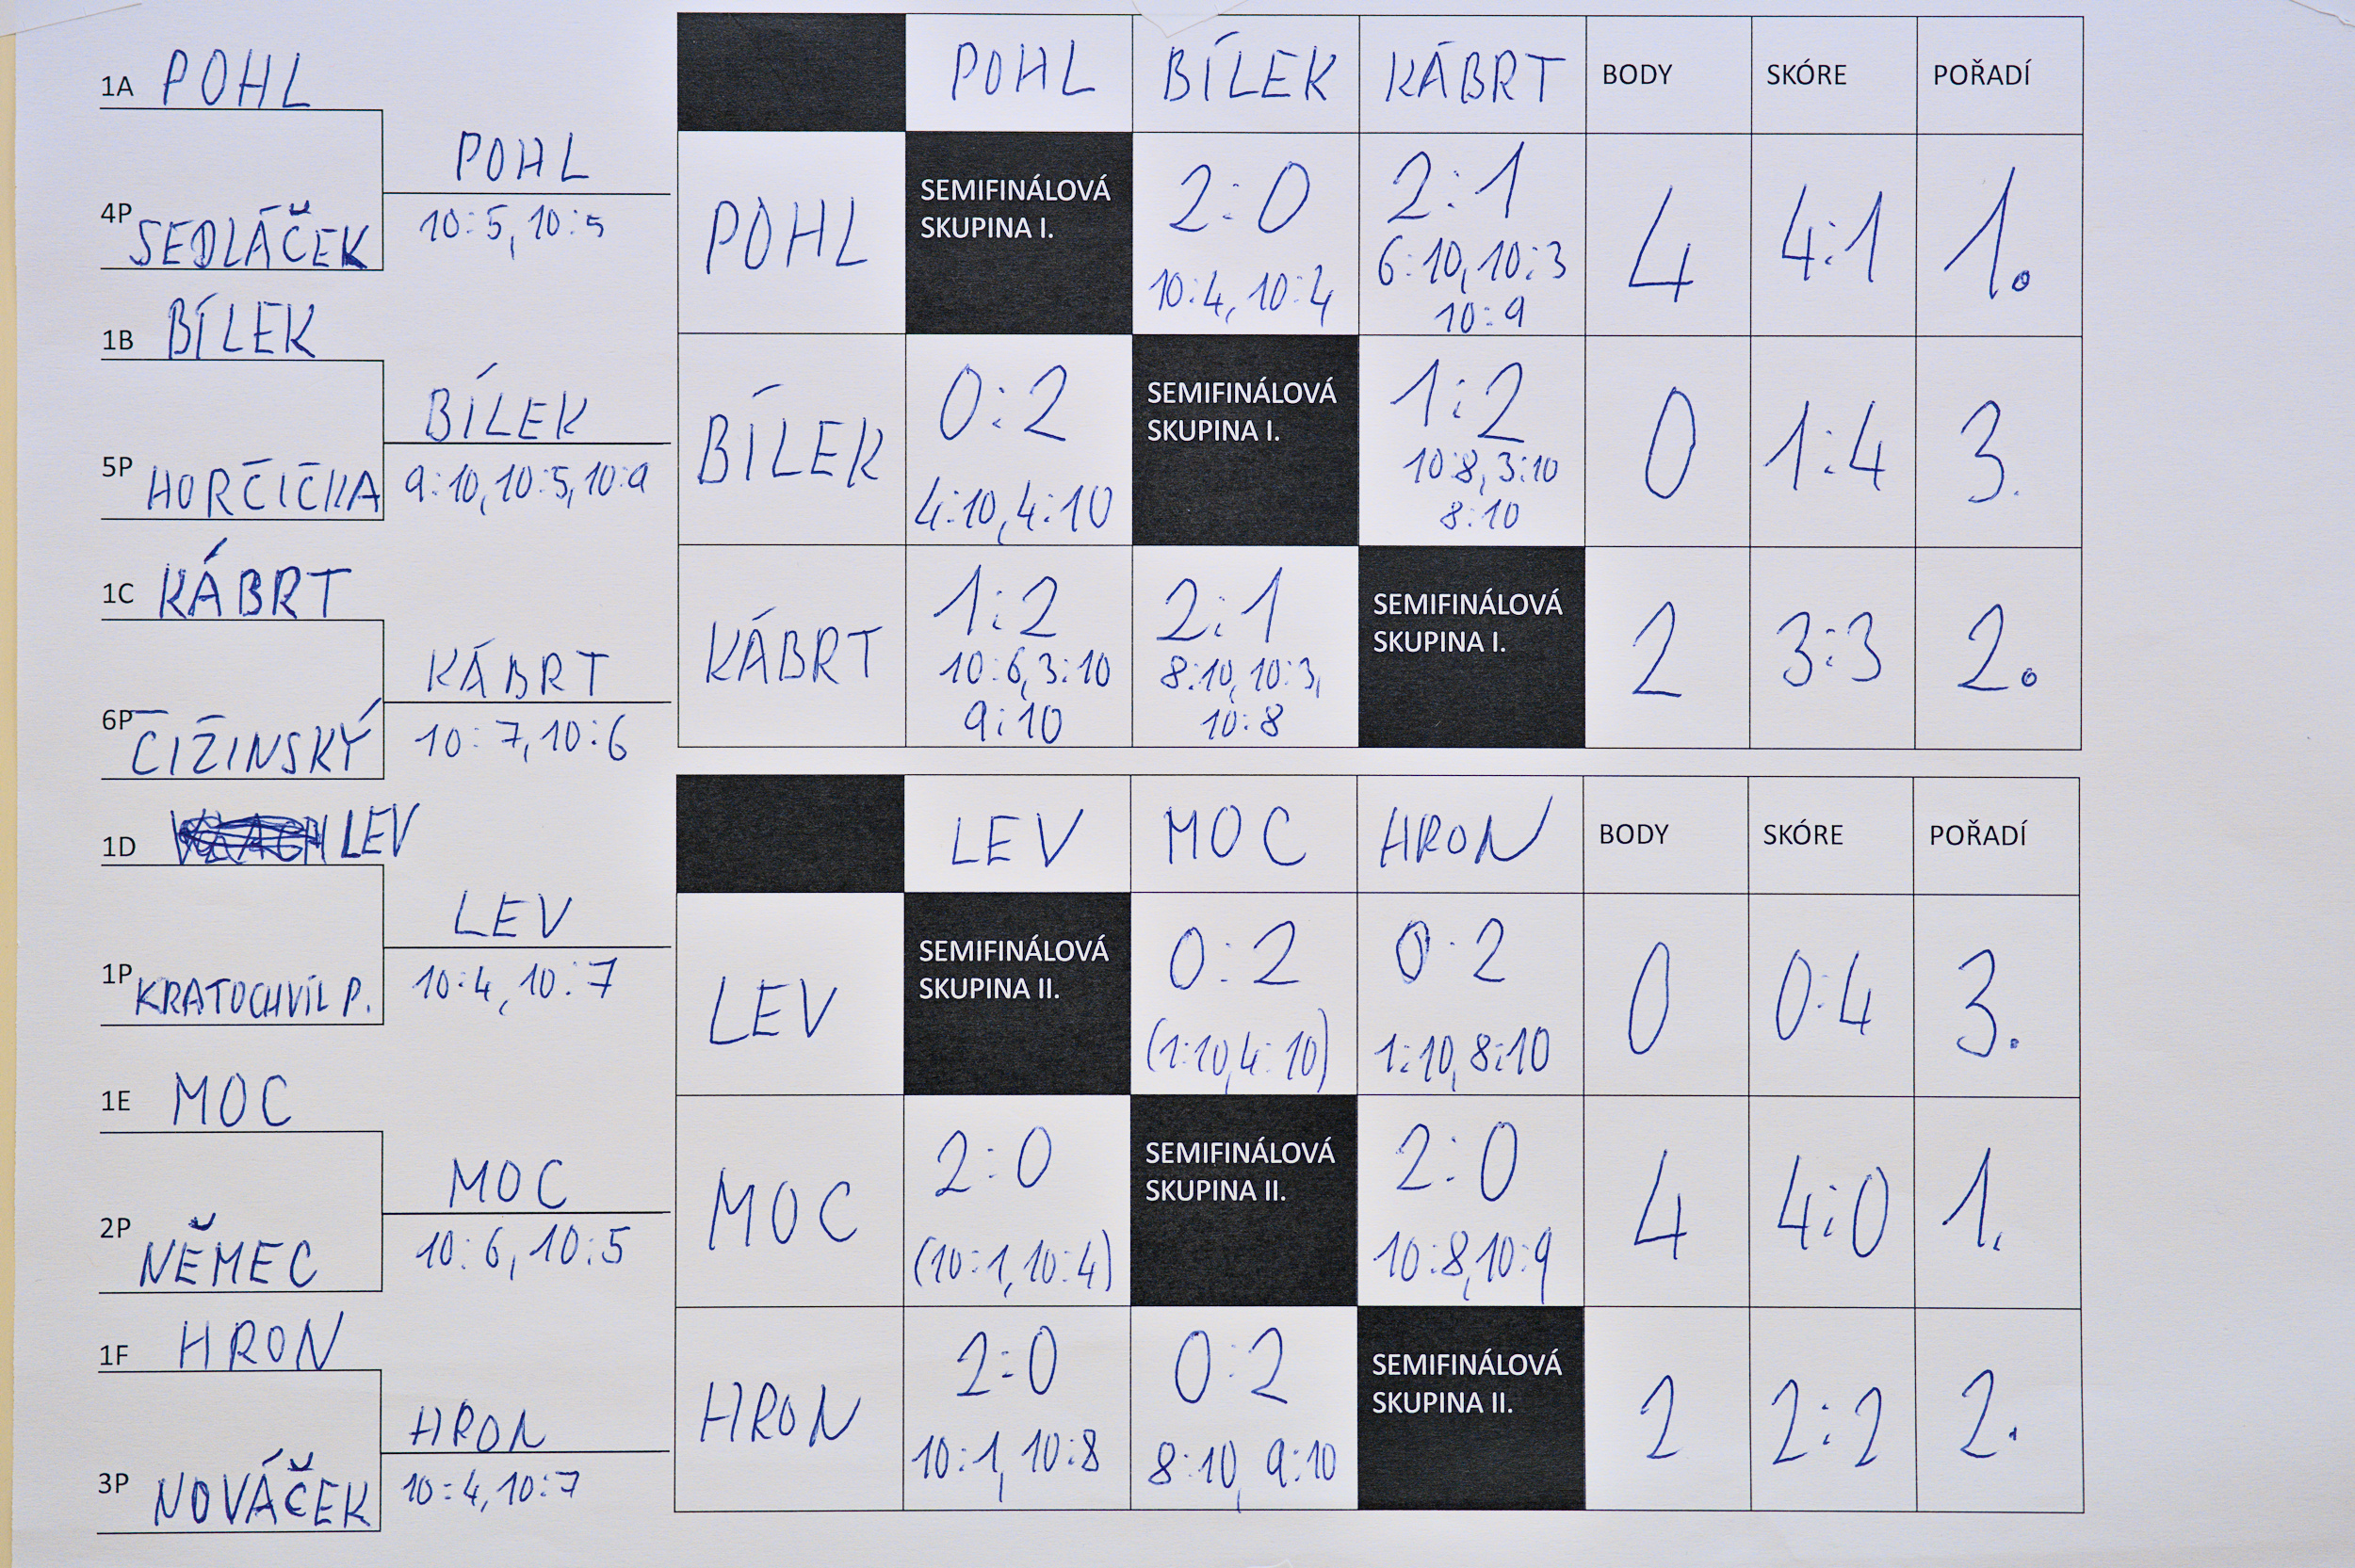 1A POHL
4P SEDLÁČEK
POHL
10:5, 10:5
1B BÍLEK
5P HORČIČKA
BÍLEK
9:10, 10:5, 10:9
1C KÁBRT
6P ČIŽINSKÝ
KÁBRT
10:7, 10:6
1D LEV
1P KRATOCHVÍL P.
LEV
10:4, 10:7
1E MOC
2P NĚMEC
MOC
10:6, 10:5
1F HRON
3P NOVÁČEK
HRON
10:4, 10:7
POHL BÍLEK KÁBRT BODY SKÓRE POŘADÍ
POHL
SEMIFINÁLOVÁ
SKUPINA I.
2:0
10:4, 10:4
2:1
6:10, 10:3
10:9
4 4:1 1.
BÍLEK
0:2
4:10, 4:10
SEMIFINÁLOVÁ
SKUPINA I.
1:2
10:8, 3:10
8:10
0 1:4 3.
KÁBRT
1:2
10:6, 3:10
9:10
2:1
8:10, 10:3,
10:8
SEMIFINÁLOVÁ
SKUPINA I.
2 3:3 2.
LEV MOC HRON BODY SKÓRE POŘADÍ
LEV
SEMIFINÁLOVÁ
SKUPINA II.
0:2
(1:10, 4:10)
0:2
1:10, 8:10
0 0:4 3.
MOC
2:0
(10:1, 10:4)
SEMIFINÁLOVÁ
SKUPINA II.
2:0
10:8, 10:9
4 4:0 1.
HRON
2:0
10:1, 10:8
0:2
8:10, 9:10
SEMIFINÁLOVÁ
SKUPINA II.
2 2:2 2.